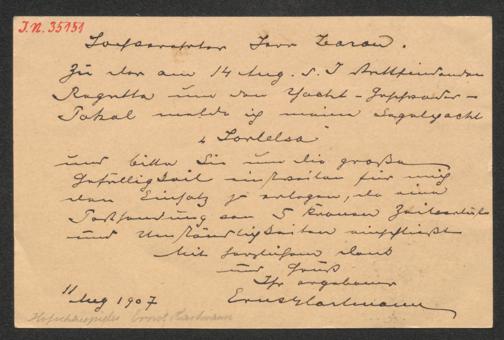 I.N. 35151
Hochverehrter Herr Baron.
Zu der am 14 Aug. d. J stattfindenden
Regatta um den Yacht-Geschwader-
Pokal melde ich meine Segelyacht
„Sorlelsa“
und bitte Sie um die große
Gefälligkeit einstweilen für mich
den Einsatz zu erlegen, da eine
Postsendung von 5 Kronen Zeitverlust
und Umständlichkeiten einschließt
Mit herzlichem Dank
und Gruß
Ihr ergebener
11 Aug 1907 Ernst Hartmann
Hofschauspieler Ernst Hartmann